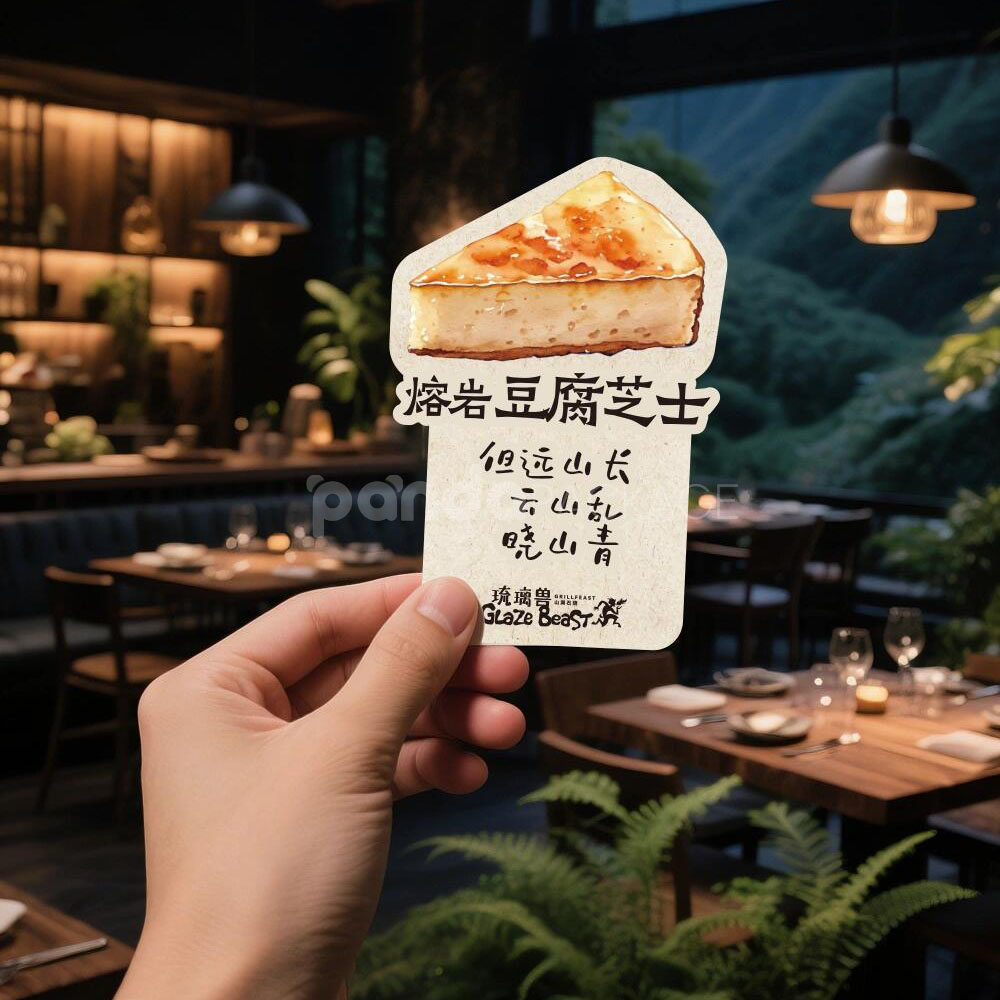 熔岩豆腐芝士
但远山长
云山乱
晓山青
琉璃兽 GRILLFEAST
山溪石烧
GLaZe BeaST